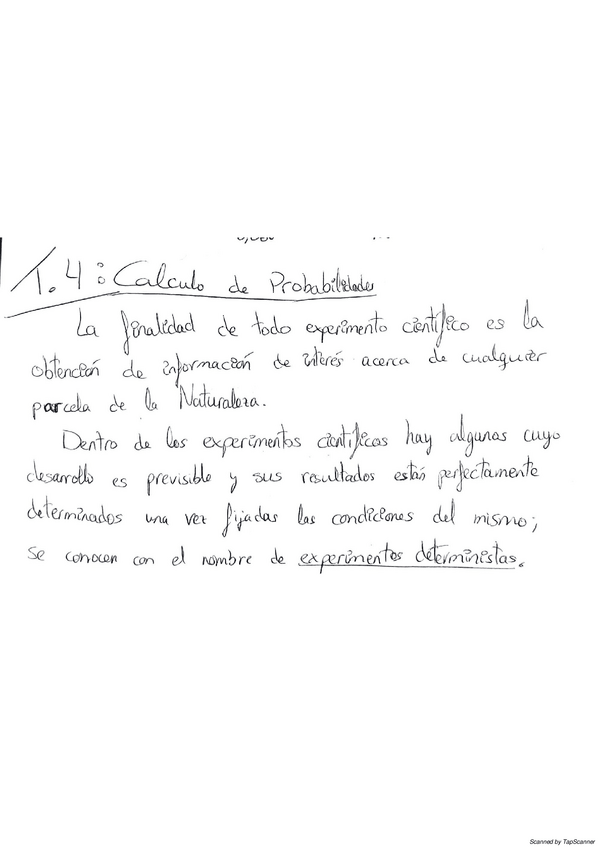 T.4: Calculo de Probabilidades
La finalidad de todo experimento científico es la
obtención de información de interés acerca de cualquier
parcela de la Naturaleza.
Dentro de los experimentos científicos hay algunos cuyo
desarrollo es previsible y sus resultados están perfectamente
determinados una vez fijadas las condiciones del mismo;
se conocen con el nombre de experimentos deterministas.
Scanned by TapScanner